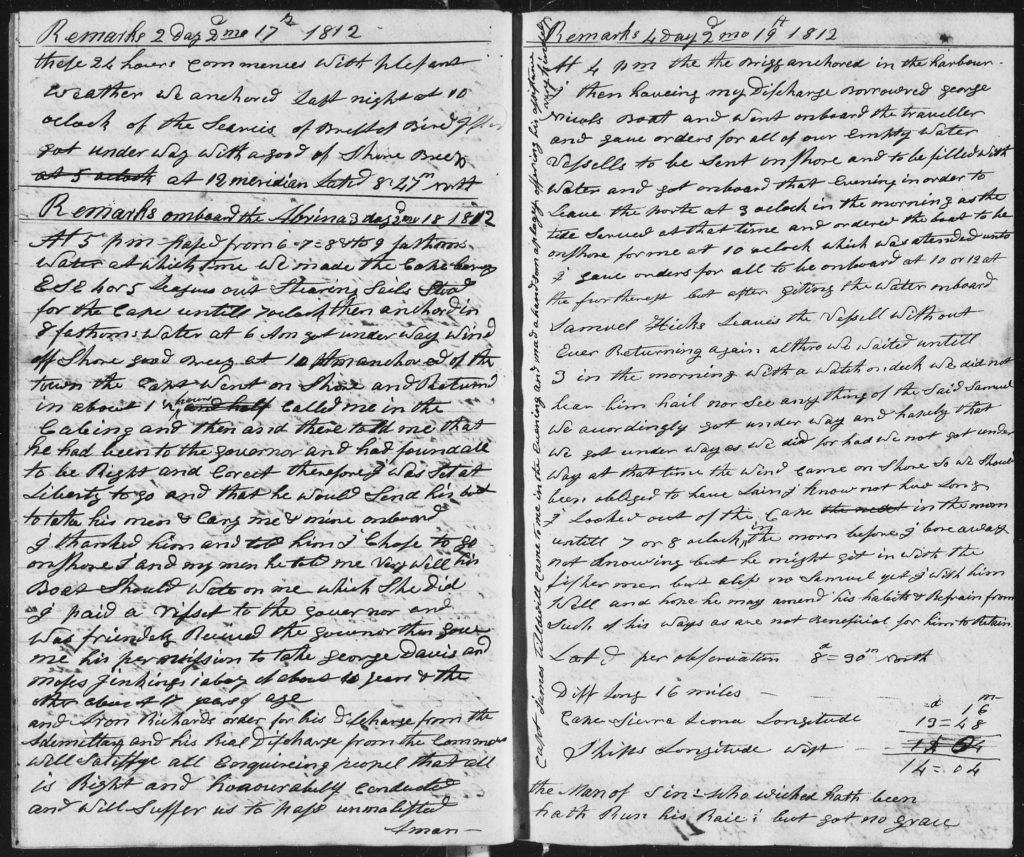 Remarks 2 day 2 mo 17th 1812
these 24 hours Commences With plesant
Weather We anchored last night at 10
oclock of the Scarcies of Bristol
got under way With a good of Shore Breez
at 5 oclock at 12 meridian Latd 8=27m north
Remarks onboard the Abrina 3 day 2d mo 18 1812
At 5 pm pased from 6=7=8 & to 9 fathoms
Water at which time We made the Cape
ESE 4 or 5 Leagues out Stearing Sails Stood
for the Cape untill 7 oclock then anchord in
8 fathoms Water at 6 Am got under Way Wind
off Shore good Breez at 10 anchored of the
town the Capt Went on Shore and Return
in about 1 hours and half Called me in the
Cabeing and then and there told me that
he had been to the governor and had found all
to be Right and Corect therefore I was Set at
Liberty to go and that he Would Send his bot
to take his men & Cary me & mine onboard
I thanked him and told him I Chose to go
onshore I and my men he told me Very Will his
Boat Should Wate on me which She did
I paid a Visset to the governor and
Was friendely Recived the govenor then gave
me his permission to take george Davis and
moses Jinkings 1 aboy of about 10 years & the
other about 17 years of age
and Aron Richards order for his discharge from the
Admirltary and his Real Discharge from the Commons
Will Satisffye all Enquireing peopel that all
is Right and honourabely Conducted
and Will Suffer us to pass unmolested
Aman—
Remarks 4 day 2 mo 19st 1812
At 4 pm the the Brigg anchored in the harbour
I then haveing my Discharge Borrowred george
Nicols Boat and Went onboard the traveller
and gave orders for all of our Empty Water
Vessells to be Sent onshore and to be filled With
Water and got onboard that Evening in order to
Leave the porte at 3 oclock in the morning as the
tide Served at that time and ordered the boat to be
onshore for me at 10 oclock which was atended unto
I gave orders for all to be onboard at 10 or 12 at
the furtherest but after giting the Water onboard
Samuel Hicks Leaves the Vessell Without
Ever Returning again altho We Waited untill
3 in the morning With a Watch on deck We did not
hear him hail nor See any thing of the Said Samuel
We acordingly got under Way and hapely that
We got under Way as We did for had We not got under
Way at that time the Wind Came on Shore So We Should
been oblieged to have Lain I know not how Long
I Looked out of the Cape the next in the morn
untill 7 or 8 oclock in the morn before I bore away
not knowing but he might get in With the
fisher men but alass no Samuel yet I With him
Well and hope he may amend his habits & Refrain from
Such of his Ways as are not Beneficial for him to Retain
Lat d per observation 8d=30m north
Diff Long 16 miles — 16m
Cape Sierra Leona Longitude 13=48
Ships Longitude West
14=04
the Man of Sin who wicked hath been
hath Run his Raice but got no grace
Capt James Tildwill Came to me in the Evening and mad ahandsom apology offring his asistance